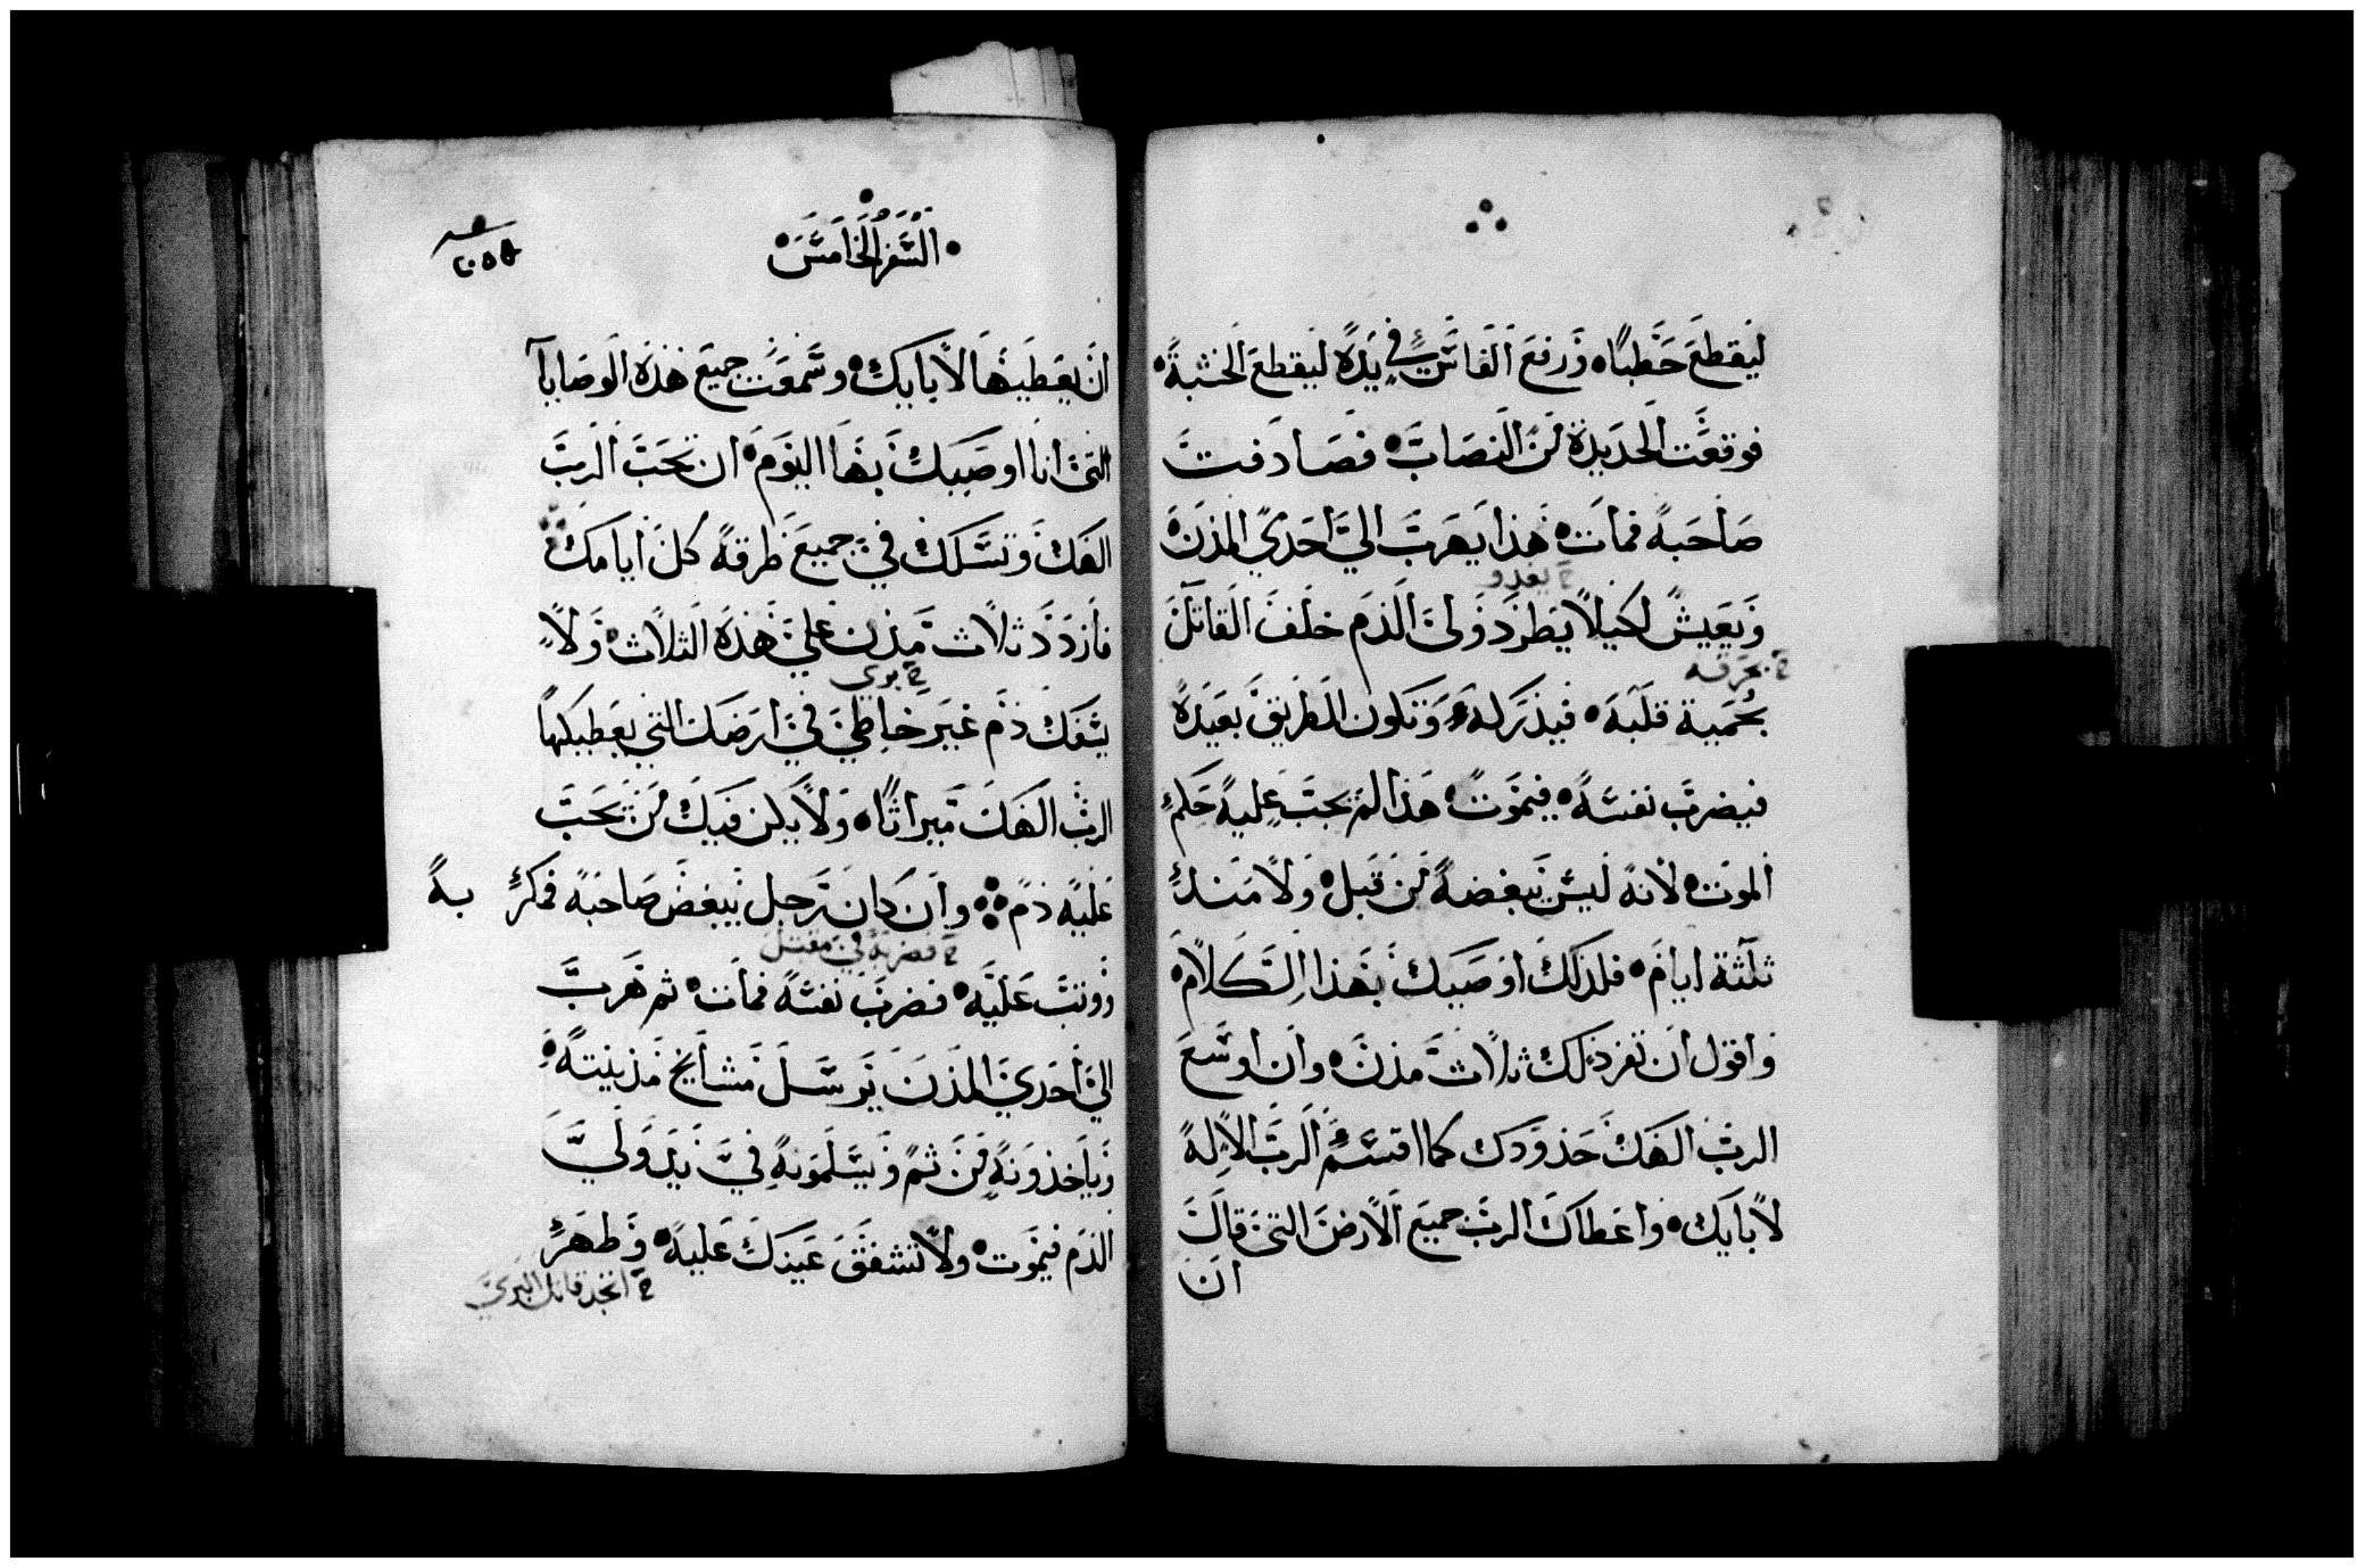 ليقطع حطبًا • ورفع الفاس في يده ليقطع الخشبة •
فوقعت الحديدة من النصاب • فصادفت
صاحبه فمات • هذا يهرب الي احدي المدن •
خ يعدو
ويعيش لكيلا يطرد ولي الدم خلف القاتل
خ بحرقه
بحمية قلبه • فيدركه وتكون الطريق بعيده
فيضرب نفسه • فيموت • هذا لم يجب عليه حكم
الموت • لانه ليس يبغضه من قبل • ولا منذ
ثلثة ايام • فلذلك اوصيك بهذا الكلام •
واقول ان تفرد لك ثلاث مدن • وان اوسع
الرب الهك حدودك كما اقسم الرب الاله
لابايك • واعطاك الرب جميع الارض التي قال
ان
• السفر الخامس •
ان يعطيها لابايك • وسمعت جميع هذه الوصايا
التي انا اوصيك بها اليوم • ان تحب الرب
الهك وتسلك في جميع طرقه كل ايامك
فازدد ثلاث مدن علي هذه الثلاث • ولا
خ بري
يسفك دم غير خاطي في ارضك التي يعطيكها
الرب الهك ميراثًا • ولا يكن فيك من يجب
عليه دم • وان كان رجل يبغض صاحبه فمكر به
خ فضربه في مقتل
ووثب عليه • فضرب نفسه فمات • ثم هرب
الي احدي المدن يرسل مشايخ مدينته •
وياخذونه من ثم ويسلمونه في يد ولي
الدم فيموت • ولا تشفق عينك عليه • وطهر
خ قاتل البري